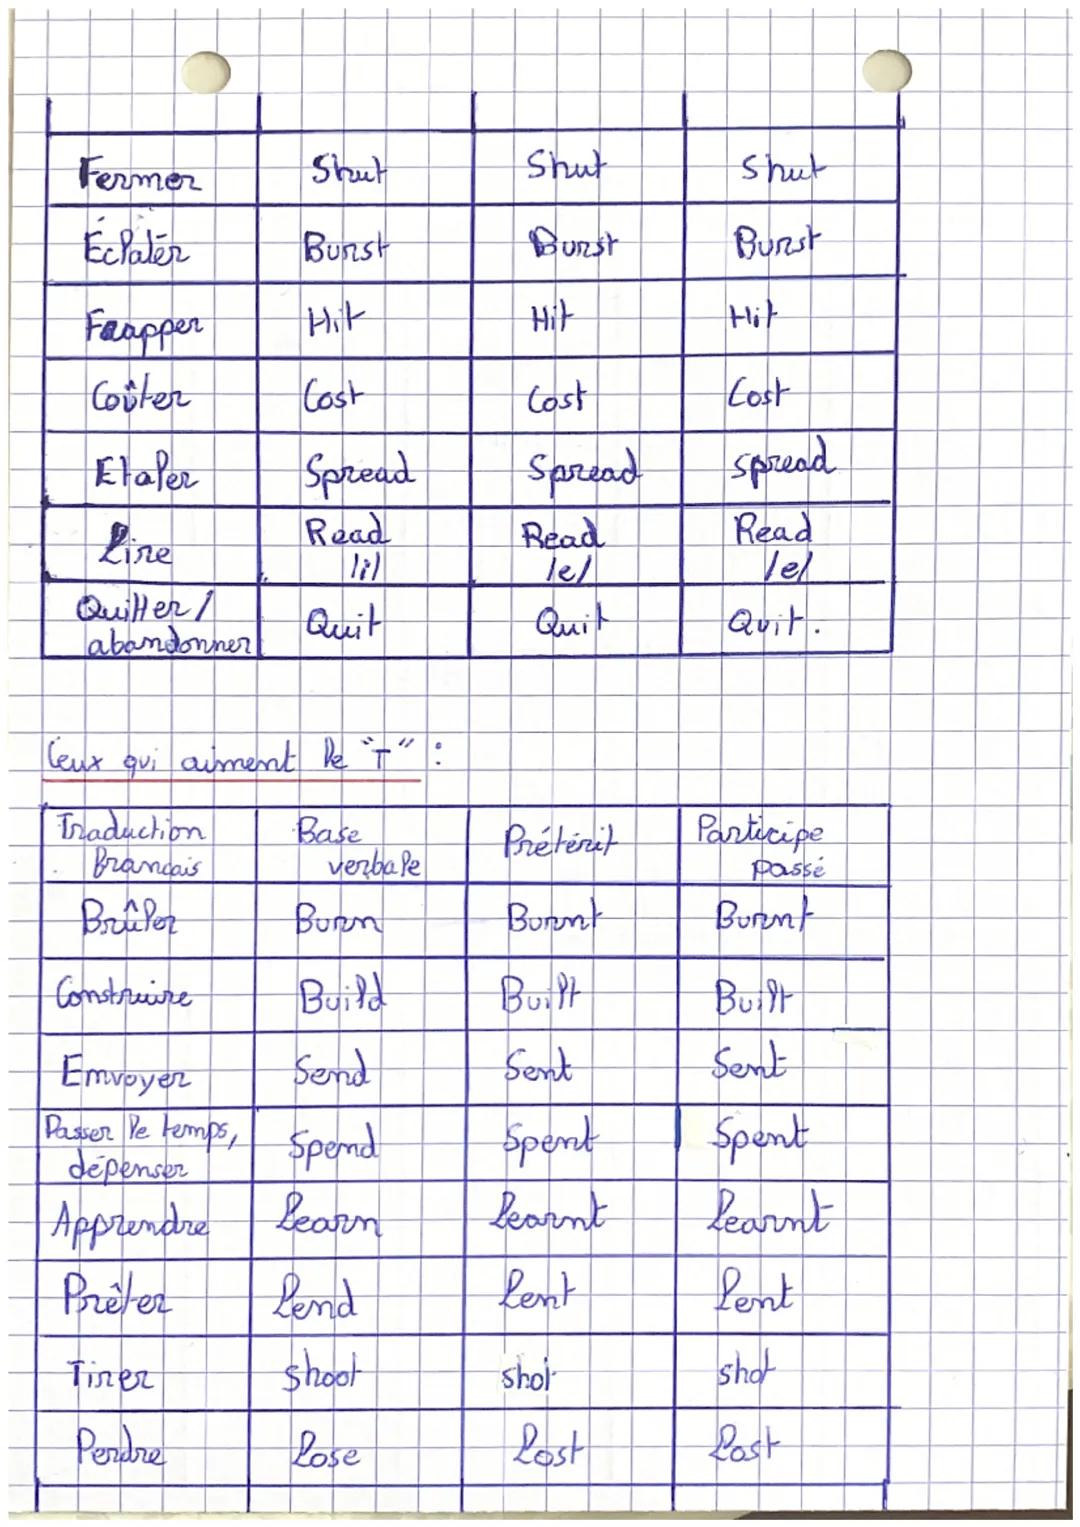 Fermer Shut Shut Shut
Éclater Burst Burst Burst
Frapper Hit Hit Hit
Coûter Cost Cost Cost
Etaler Spread Spread spread
Lire Read Read Read
/i/ /e/ /e/
Quitter / Quit Quit Quit.
abandonner
Ceux qui aiment le "T" :
Traduction Base Prétérit Participe
français verbale passé
Brûler Burn Burnt Burnt
Construire Build Built Built
Envoyer Send Sent Sent
Passer le temps, Spend Spent Spent
dépenser
Apprendre learn learnt learnt
Prêter lend lent lent
Tirer shoot shot shot
Perdre lose lost lost